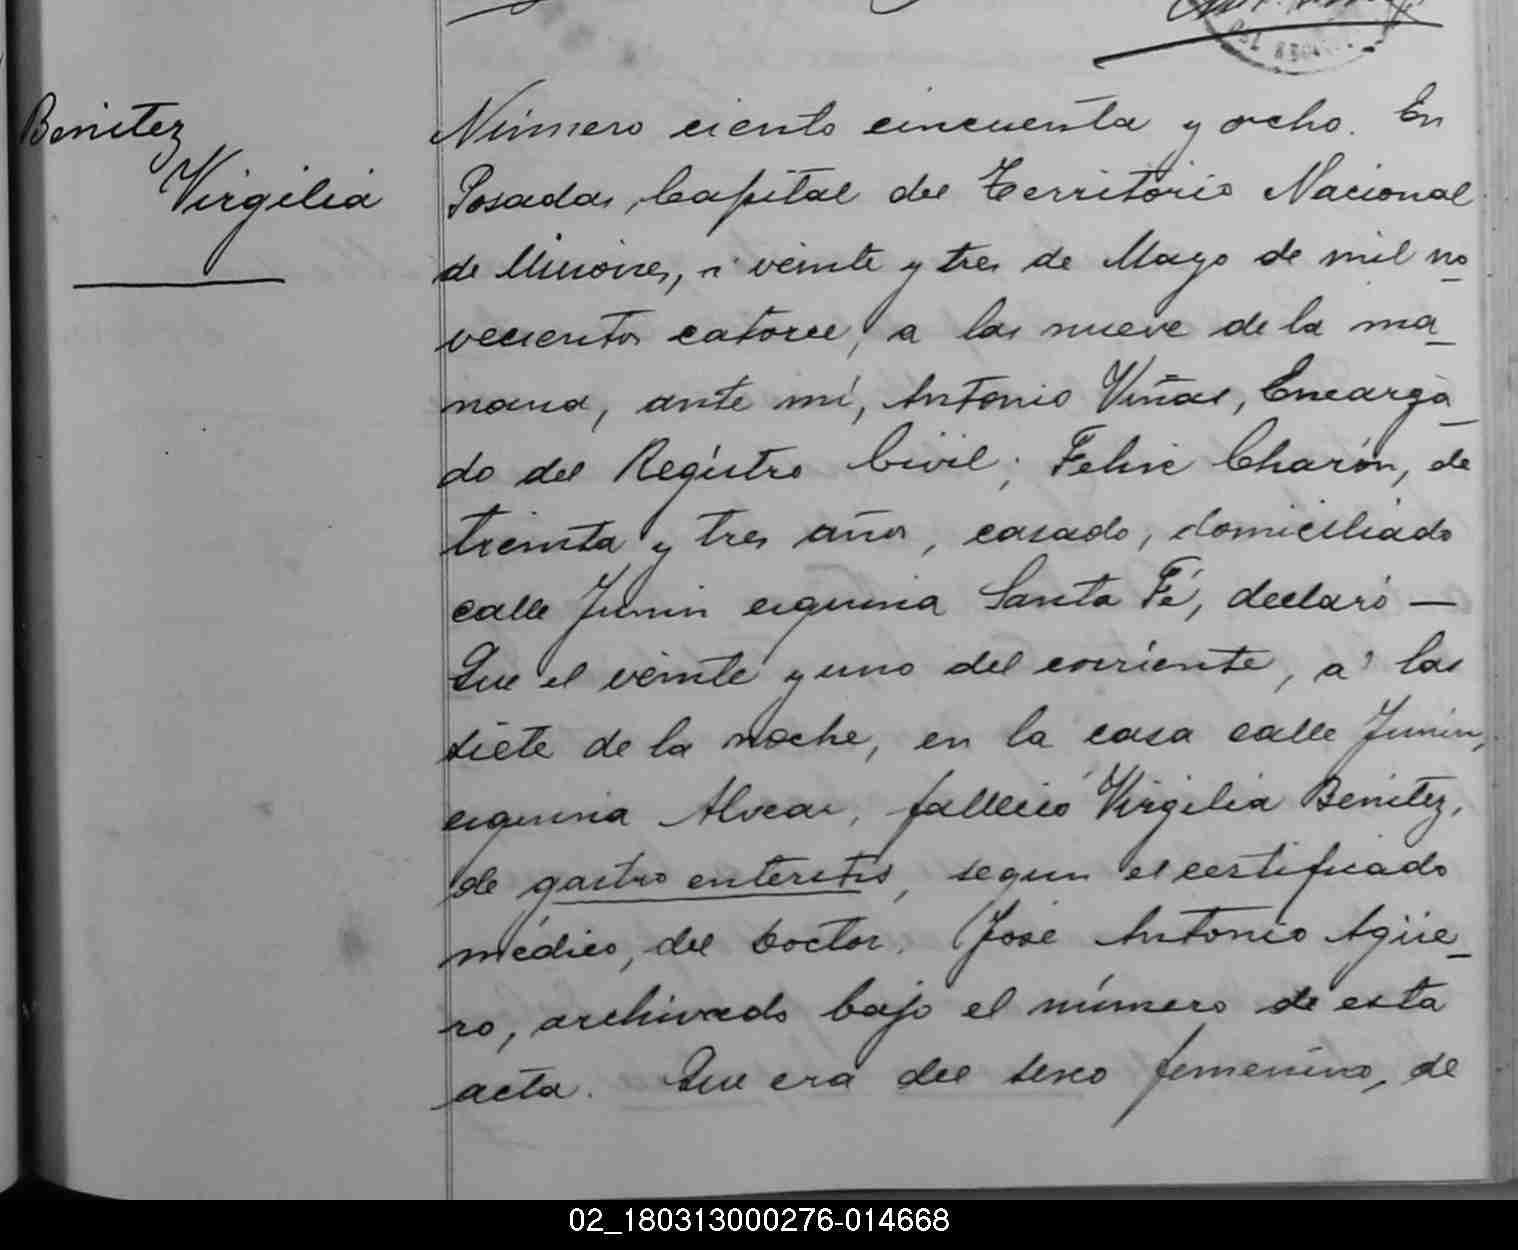 Benitez
Virgilia
Número ciento cincuenta y ocho. En
Posadas, Capital del Territorio Nacional
de Misiones, a veinte y tres de Mayo de mil no_
vecientos catorce, a las nueve de la ma_
ñana, ante mí, Antonio Viñas, Encarga_
do del Registro Civil; Felise Charón, de
treinta y tres años, casado, domiciliado
calle Junin esquina Santa Fé, declaró —
Que el veinte y uno del corriente, a las
siete de la noche, en la casa calle Junin,
esquina Alvear, falleció Virgilia Benitez,
de gastro enteritis, segun el certificado
médico, del Doctor. José Antonio Agüe_
ro, archivado bajo el número de esta
acta. Que era del sexo femenino, de
02_180313000276-014668